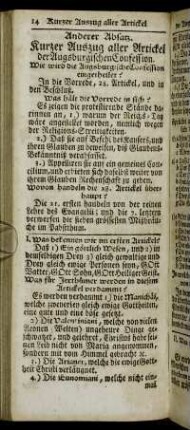 14 Kurzer Auszug aller Artickel
Anderer Absatz.
Kurzer Auszug aller Artickel
der Augsburgischen Confession.
Wie wird die Augsburgische Confession
eingetheilet?
In die Vorrede, 28. Artickel, und in
den Beschluß.
Was hält die Vorrede in sich?
Es zeigen die protestirende Stände da-
rinnen an, 1.) warum der Reichs-Tag
wäre angestellet worden, nemlich wegen
der Religions-Streitigkeiten.
2.) Daß sie auf Befehl des Kaysers, und
ihren Glauben zu beweisen, die Glaubens-
Bekänntnuß verantwortet.
3.) Appelliren sie an ein gemeines Con-
cilium, und erbieten sich daselbst weiter von
ihrem Glauben Rechenschafft zu geben.
Wovon handeln die 28. Artickel über-
haupt?
Die 21. ersten handeln von der reinen
Lehre des Evangelii; und die 7. letztern
verwerffen die sieben grössesten Mißbräu-
che im Pabstthum.
I. Was bekennen wir im ersten Artickel?
Daß 1.) Ein Göttlich Wesen, und 2.) in
demselbigen Drey 3.) gleich gewaltige und
Drey gleich ewige Personen seyn, GOtt
Vatter, GOtt Sohn, GOtt Heiliger Geist.
Was für Irrthümer werden in diesem
Artickel verdammet?
Es werden verdammt 1.) die Manichäi,
welche zweyerley gleich ewige Gottheiten,
eine gute und eine böse gesetzt.
2.) Die Valentiniani, welche von vielen
Aeonen Welten) ungeheure Dinge ge-
schwätzet, und gelehret, Christus habe sei-
nen Leib nicht von Maria angenommen,
sondern mit vom Himmel gebracht ꝛc.
3.) Die Arianer, welche die ewige Gott-
heit Christi verläugnet.
4.) Die Eunomiani, welche nicht ein-
mal